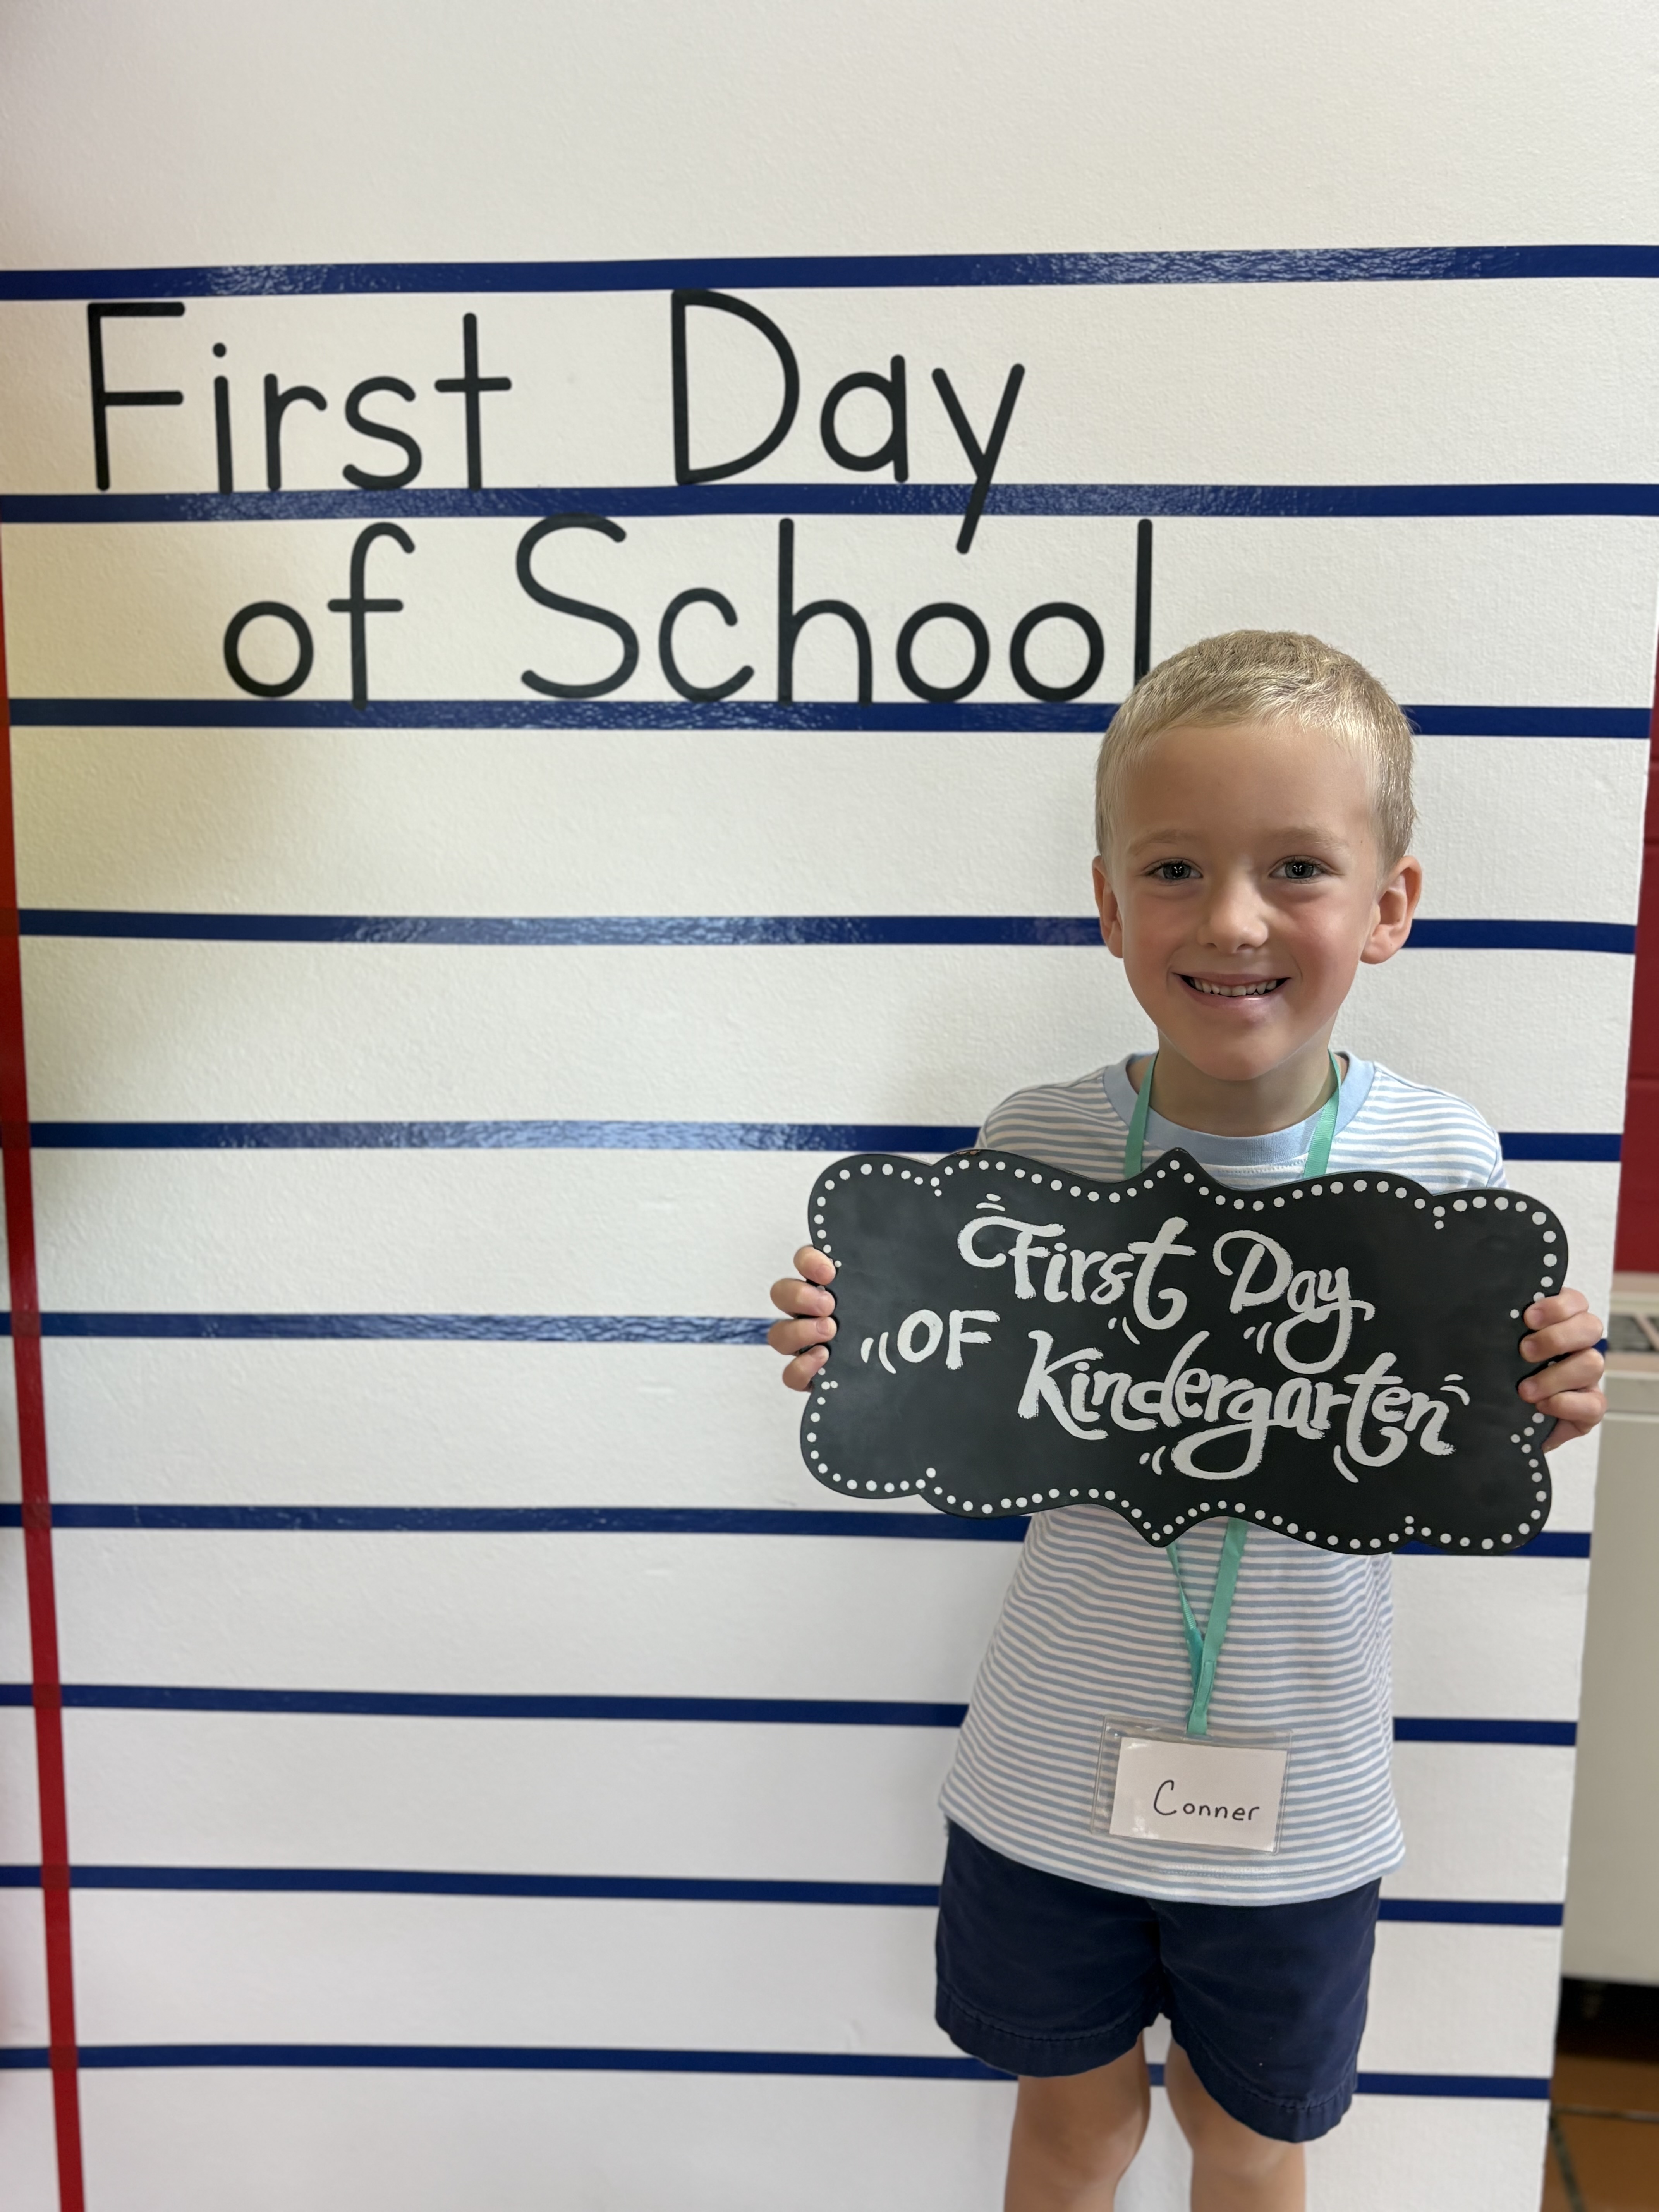 First Day
of School
First Day
OF Kindergarten
Conner